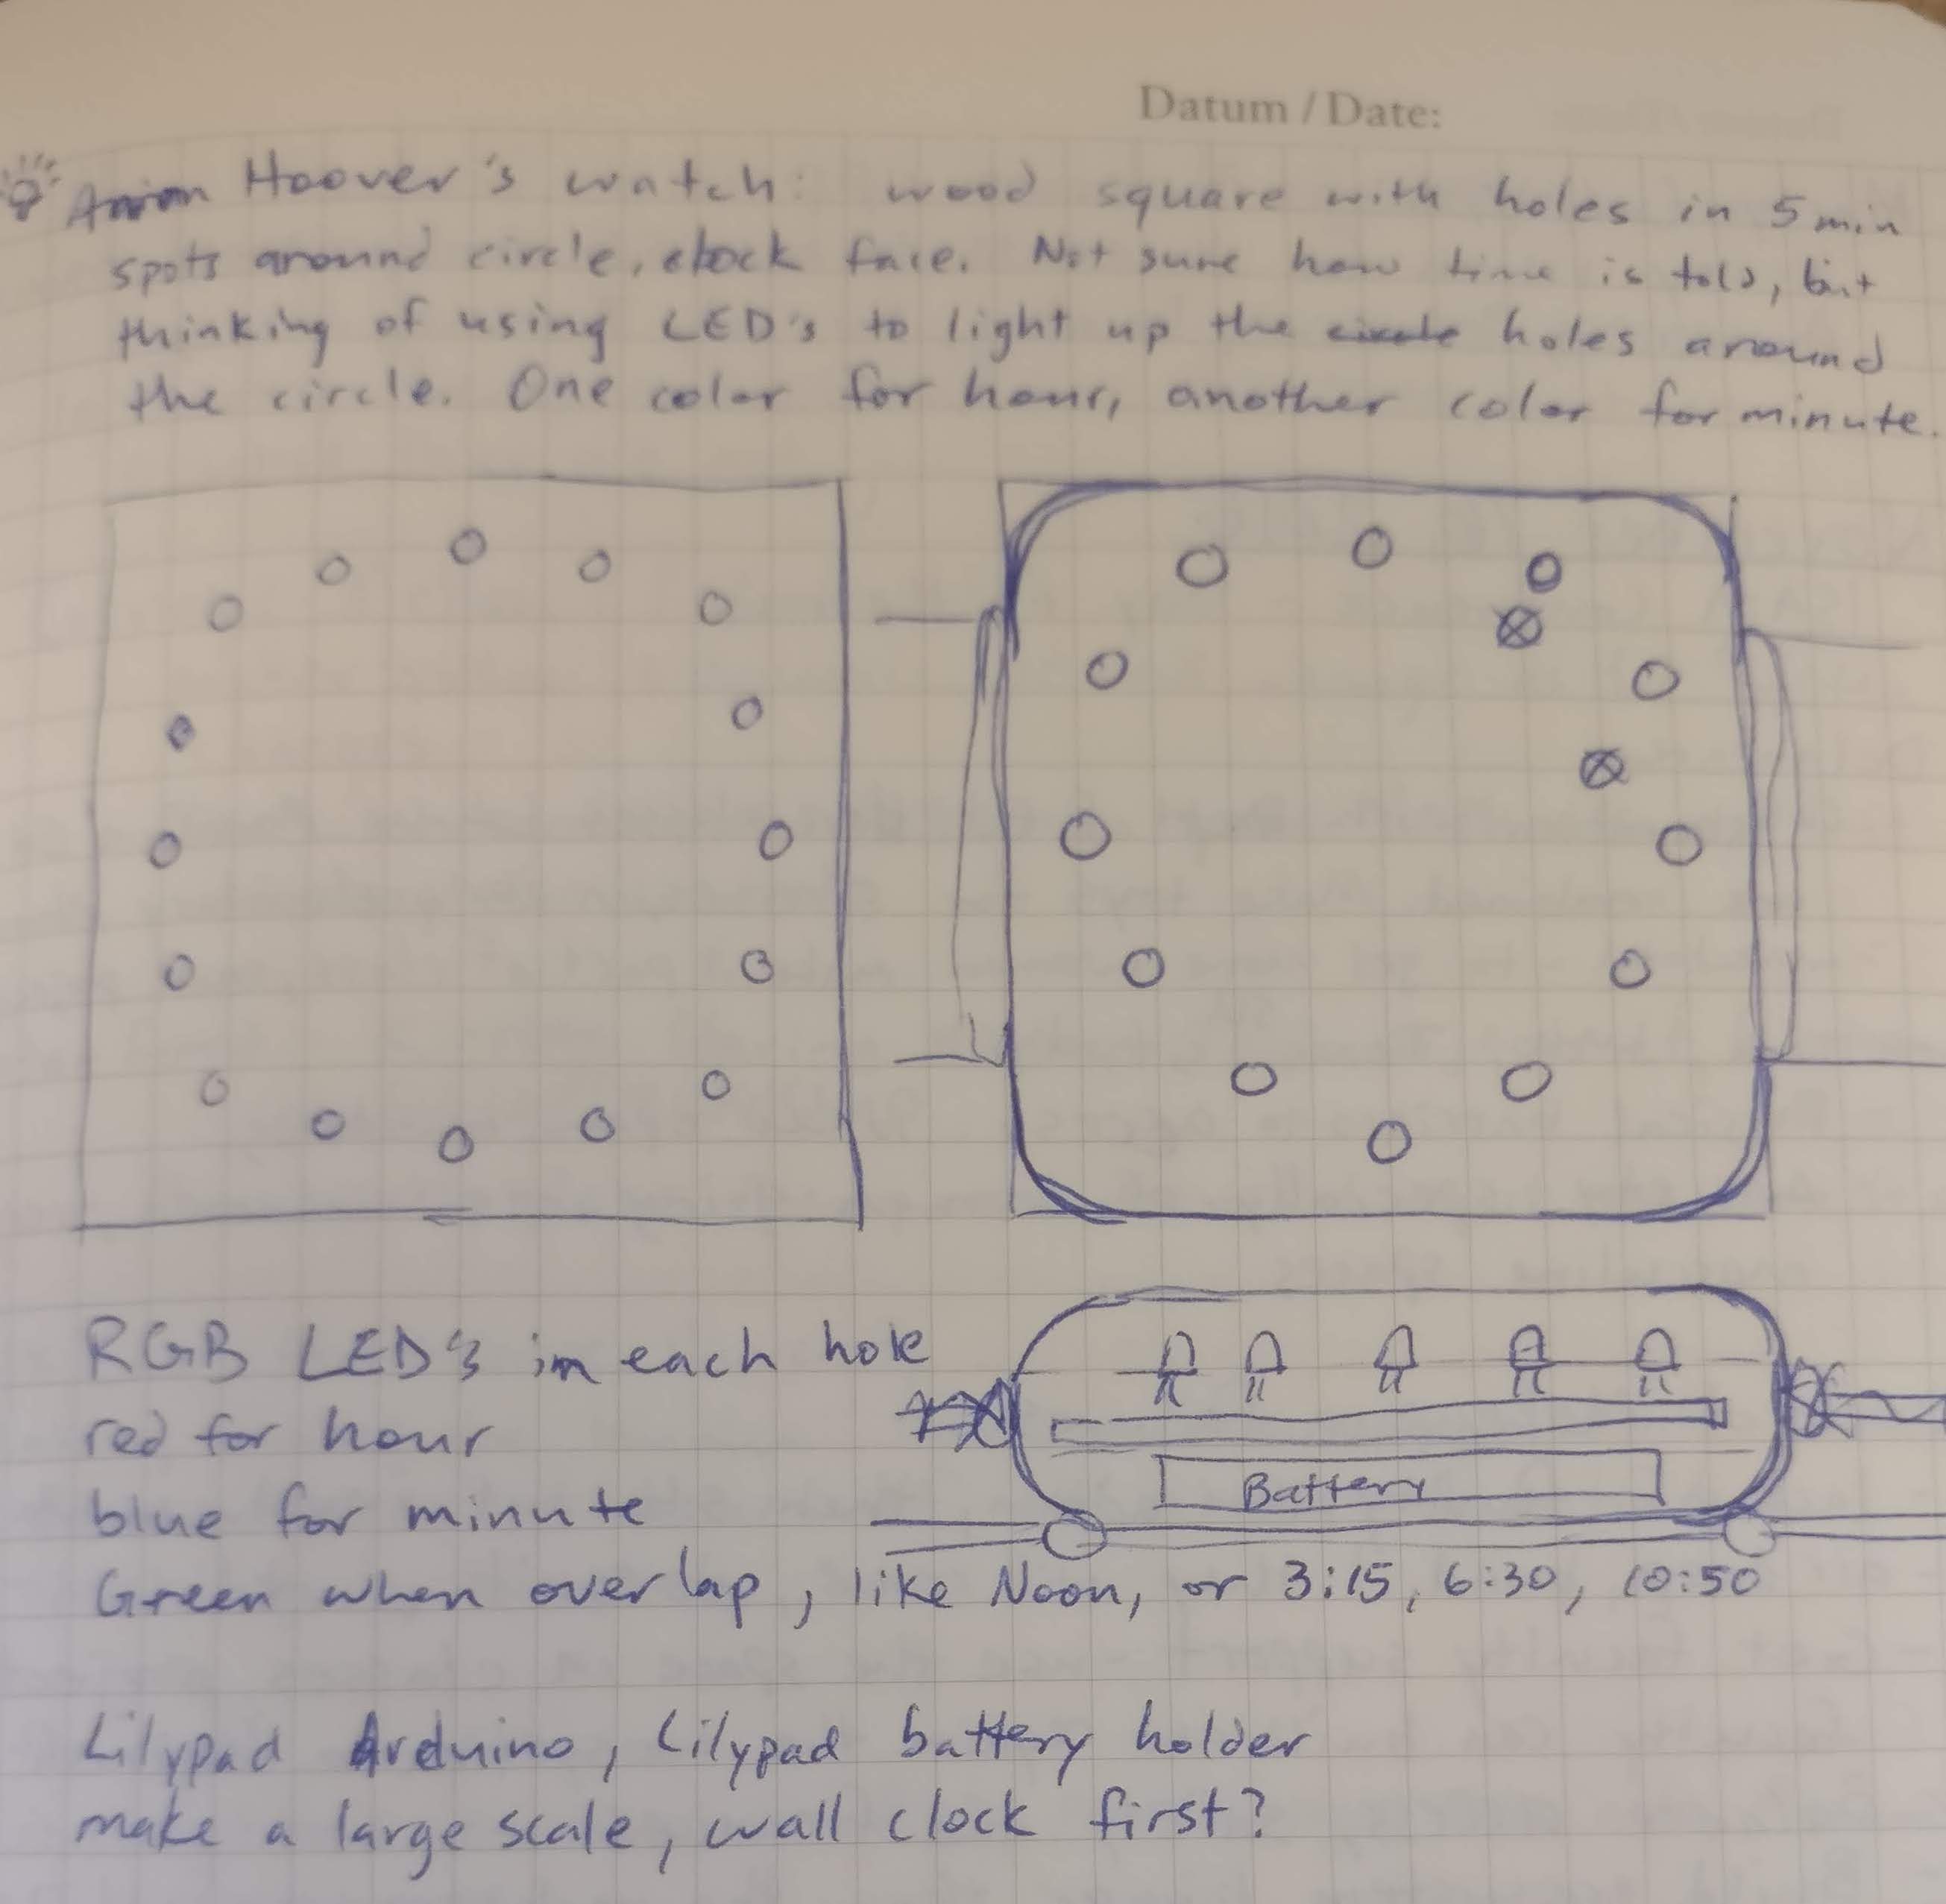 Datum / Date:
Hoover's watch: wood square with holes in 5 min
spots around circle, clock face. Not sure how time is told, but
thinking of using LED's to light up the circle holes around
the circle. One color for hour, another color for minute.
RGB LED's in each hole
red for hour
blue for minute
Battery
Green when overlap, like Noon, or 3:15, 6:30, 10:50
Lilypad Arduino, Lilypad battery holder
make a large scale, wall clock first?